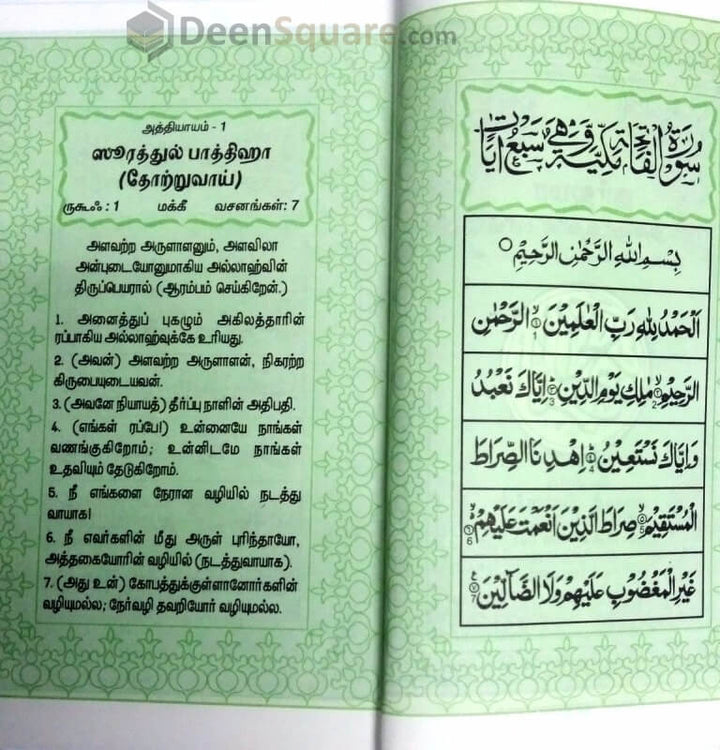 DeenSquare.com
அத்தியாயம் - 1
ஸூரத்துல் பாத்திஹா
(தோற்றுவாய்)
ருகூஃ : 1 மக்கீ வசனங்கள்: 7
அளவற்ற அருளாளனும், அளவிலா
அன்புடையோனுமாகிய அல்லாஹ்வின்
திருப்பெயரால் (ஆரம்பம் செய்கிறேன்.)
1. அனைத்துப் புகழும் அகிலத்தாரின்
ரப்பாகிய அல்லாஹ்வுக்கே உரியது.
2. (அவன்) அளவற்ற அருளாளன், நிகரற்ற
கிருபையுடையவன்.
3. (அவனே நியாயத்) தீர்ப்பு நாளின் அதிபதி.
4. (எங்கள் ரப்பே!) உன்னையே நாங்கள்
வணங்குகிறோம்; உன்னிடமே நாங்கள்
உதவியும் தேடுகிறோம்.
5. நீ எங்களை நேரான வழியில் நடத்து
வாயாக!
6. நீ எவர்களின் மீது அருள் புரிந்தாயோ,
அத்தகையோரின் வழியில் (நடத்துவாயாக).
7. (அது உன்) கோபத்துக்குள்ளானோர்களின்
வழியுமல்ல; நேர்வழி தவறியோர் வழியுமல்ல.
سُوْرَةُ الْفَاتِحَةِ مَكِّيَّةٌ وَّهِيَ سَبْعُ اٰيَاتٍ
بِسْمِ اللهِ الرَّحْمٰنِ الرَّحِيْمِ
اَلْحَمْدُ لِلّٰهِ رَبِّ الْعٰلَمِيْنَ 1 الرَّحْمٰنِ
الرَّحِيْمِ 2 مٰلِكِ يَوْمِ الدِّيْنِ 3 اِيَّاكَ نَعْبُدُ
وَاِيَّاكَ نَسْتَعِيْنُ 4 اِهْدِنَا الصِّرَاطَ
الْمُسْتَقِيْمَ 5 صِرَاطَ الَّذِيْنَ اَنْعَمْتَ عَلَيْهِمْ 6
غَيْرِ الْمَغْضُوْبِ عَلَيْهِمْ وَلَا الضَّآلِّيْنَ 7